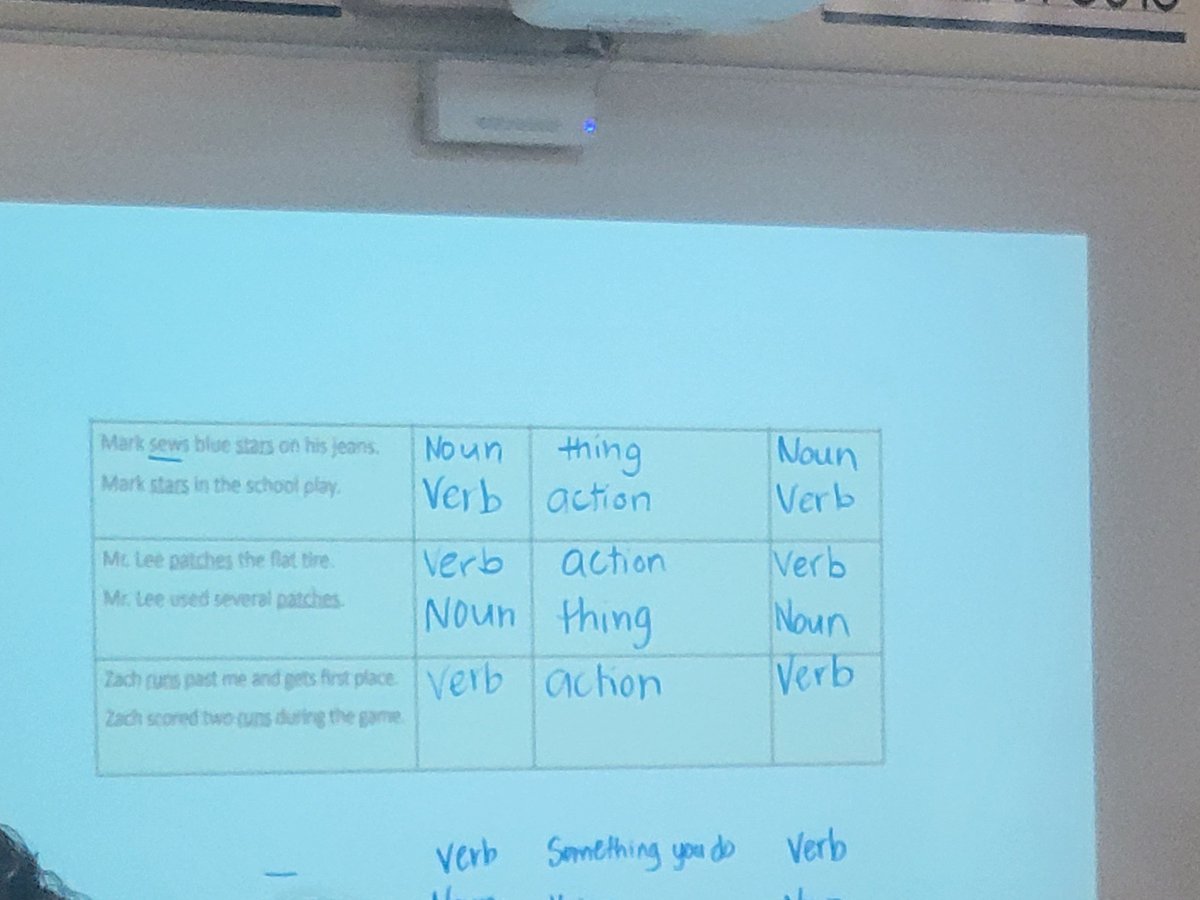 Mark sews blue stars on his jeans. Noun thing Noun
Mark stars in the school play. Verb action Verb
Mr. Lee patches the flat tire. Verb action Verb
Mr. Lee used several patches. Noun thing Noun
Zach runs past me and gets first place. Verb action Verb
Zach scored two runs during the game.
Verb Something you do Verb